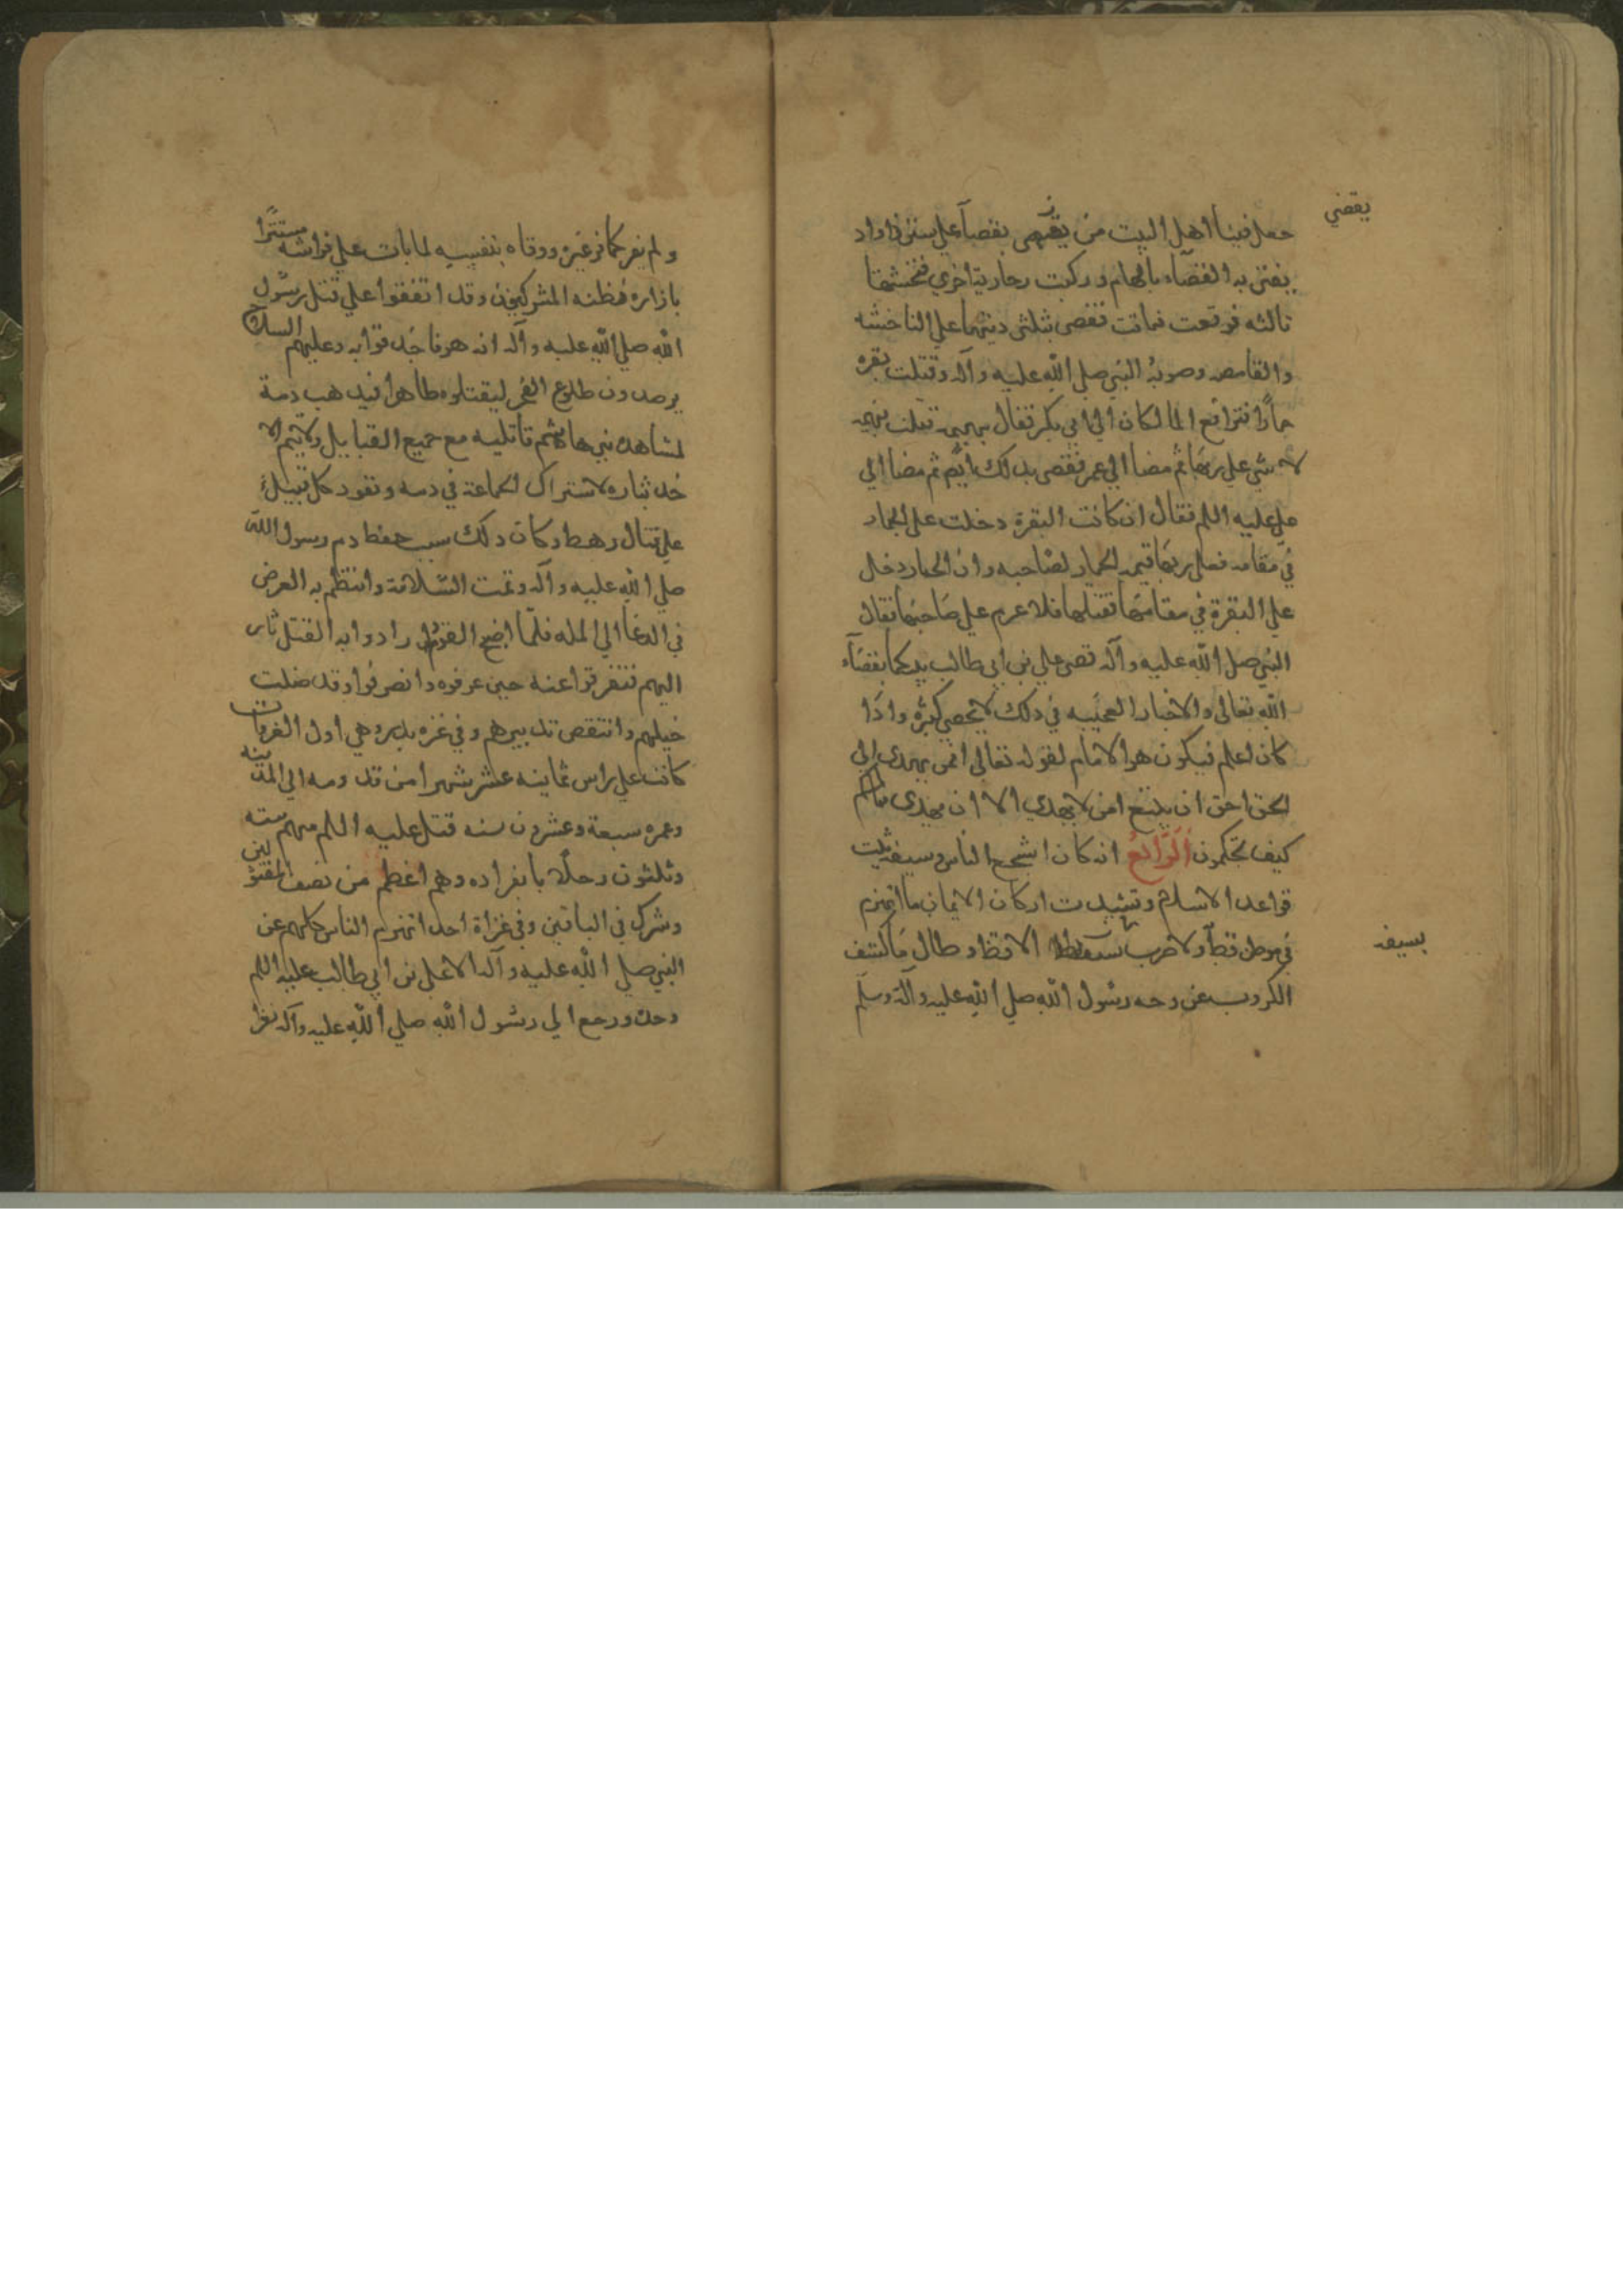 يقضي
جعل فينا اهل البيت من يقضى بقضاء على سنن داود
يعنى به القضاء بالهام وركبت جارية اخري فنخستها
ثالثه فوقعت فماتت فقضى بثلثى ديتها على الناخسه
والقامصه وصوبه النبي صلي الله عليه وآله وقتلت بقره
حمارًا فترافع المالكان الي ابي بكر فقال بهيمه قتلت بهيمه
لا شئ علي ربها ثم مضيا الي عمر فقضى بذلك ايضًا ثم مضيا الي
علي عليه السلم فقال ان كانت البقرة دخلت على الحمار
في مقامه فعلى ربها قيمه الحمار لصاحبه وان الحمار دخل
علي البقرة في مقامها فقتلها فلا غرم علي صاحبها فقال
النبي صلي الله عليه وآله قضى علي بن ابي طالب بينكما بقضآء
الله تعالى والاخبار العجيبه في ذلك لا تحصي كثرة واذا
كان اعلم فيكون هو الامام لقوله تعالى افمن يهدى الى
الحق احق ان يتبع امن لا يهدي الا ان يهدى فمالكم
كيف تحكمون الرابع انه كان اشجع الناس وبسيفه ثبتت
قواعد الاسلام وتشيدت اركان الايمان ما انهزم
في موطن قط ولا ضرب بسيفه الا قط وطال ما كشف
بسيفه
الكروب عن وجه رسول الله صلي الله عليه وآله وسلم
ولم يفر كما فر غيره ووقاه بنفسه لما بات علي فراشه مستترًا
بازاره فظنه المشركون وقد اتفقوا علي قتل رسول
الله صلي الله عليه وآله انه هو فاحدقوا به وعليهم السلاح
يرصدون طلوع الفجر ليقتلوه ظاهرا فيذهب دمه
لمشاهدة بني هاشم قاتليه مع جميع القبايل ولا يتم لا
خذ ثاره لاشتراك الجماعة في دمه وتقود كل قبيلة
علي قتال رهطه وكان ذلك سبب حفظ دم رسول الله
صلي الله عليه وآله وتمت السلامة وانتظم به الغرض
في الدعا الي المله فلما اصبح القوم وارادوا به القتل ثار
اليهم فتفرقوا عنه حين عرفوه وانصرفوا وقد ضلت
حيلهم وانتقص تدبيرهم وفي غزه بدر وهي اول الغزوات
كانت علي راس ثمانيه عشر شهرا من قدومه الي المدينه
وعمره سبعة وعشرون سنه قتل عليه السلم منهم سته
وثلثون رجلًا بانفراده وهم اعظم من نصف المقتولين
وشرك في الباقين وفي غزاة احد انهزم الناس كلهم عن
النبي صلي الله عليه وآله الا علي بن ابي طالب عليه السلم
وحده ورجع الي رسول الله صلي الله عليه وآله نفر